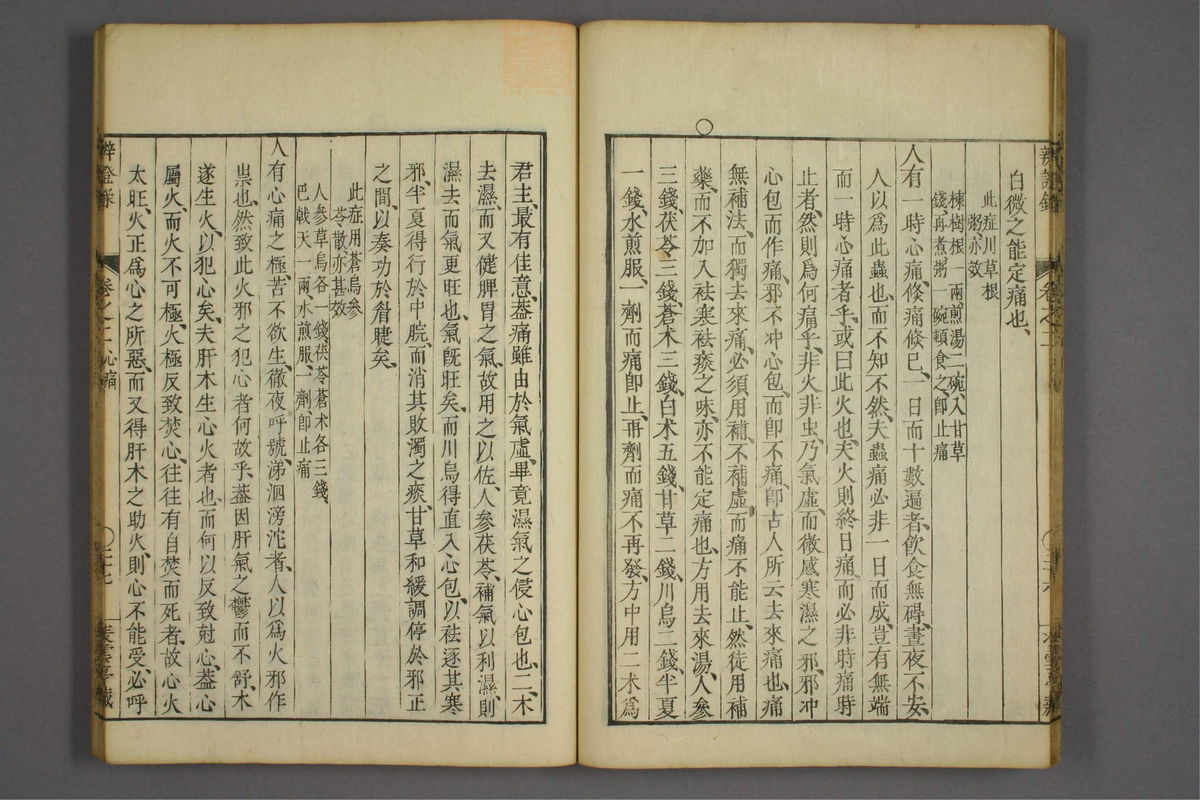 白微之能定痛也、
此症川草根
粥亦效
楝樹根一兩煎湯二碗入甘草
錢再煮粥一碗頓食之卽止痛
人有一時心痛、倏痛倏已、一日而十數遍者、飲食無碍、晝夜不安、
人以爲此蟲也、而不知不然、夫蟲痛必非一日而成、豈有無端
而一時心痛者乎、或曰此火也、夫火則終日痛、而必非時痛時
止者、然則爲何痛乎、非火非虫、乃氣虛而微感寒濕之邪、邪冲
心包而作痛、邪不冲心包、而卽不痛、卽古人所云去來痛也、痛
無補法、而獨去來痛、必須用補、不補虛、而痛不能止、然徒用補
藥、而不加入祛寒祛痰之味、亦不能定痛也、方用去來湯、人參
三錢、茯苓三錢、蒼术三錢、白术五錢、甘草二錢、川烏二錢、半夏
一錢、水煎服、一劑而痛卽止、再劑而痛不再發、方中用二术爲
辨證錄
卷之二
君主、最有佳意、蓋痛雖由於氣虛、畢竟濕氣之侵心包也、二术
去濕、而又健脾胃之氣、故用之以佐、人參茯苓、補氣以利濕、則
濕去而氣更旺也、氣旣旺矣、而川烏得直入心包、以祛逐其寒
邪、半夏得行於中脘、而消其敗濁之痰、甘草和緩、調停於邪正
之間、以奏功於眘睫矣、
此症用蒼烏參
苓散亦甚效
人參草烏各一錢茯苓蒼术各三錢、
巴戟天一兩、水煎服一劑卽止痛
人有心痛之極、苦不欲生、徹夜呼號、涕泗滂沱者、人以爲火邪作
祟也、然致此火邪之犯心者何故乎、蓋因肝氣之鬱而不舒、木
遂生火、以犯心矣、夫肝木生心火者也、而何以反致尅心、蓋心
屬火、而火不可極、火極反致焚心、往往有自焚而死者、故心火
太旺、火正爲心之所惡、而又得肝木之助火、則心不能受、必呼
辨證錄
卷之二心痛